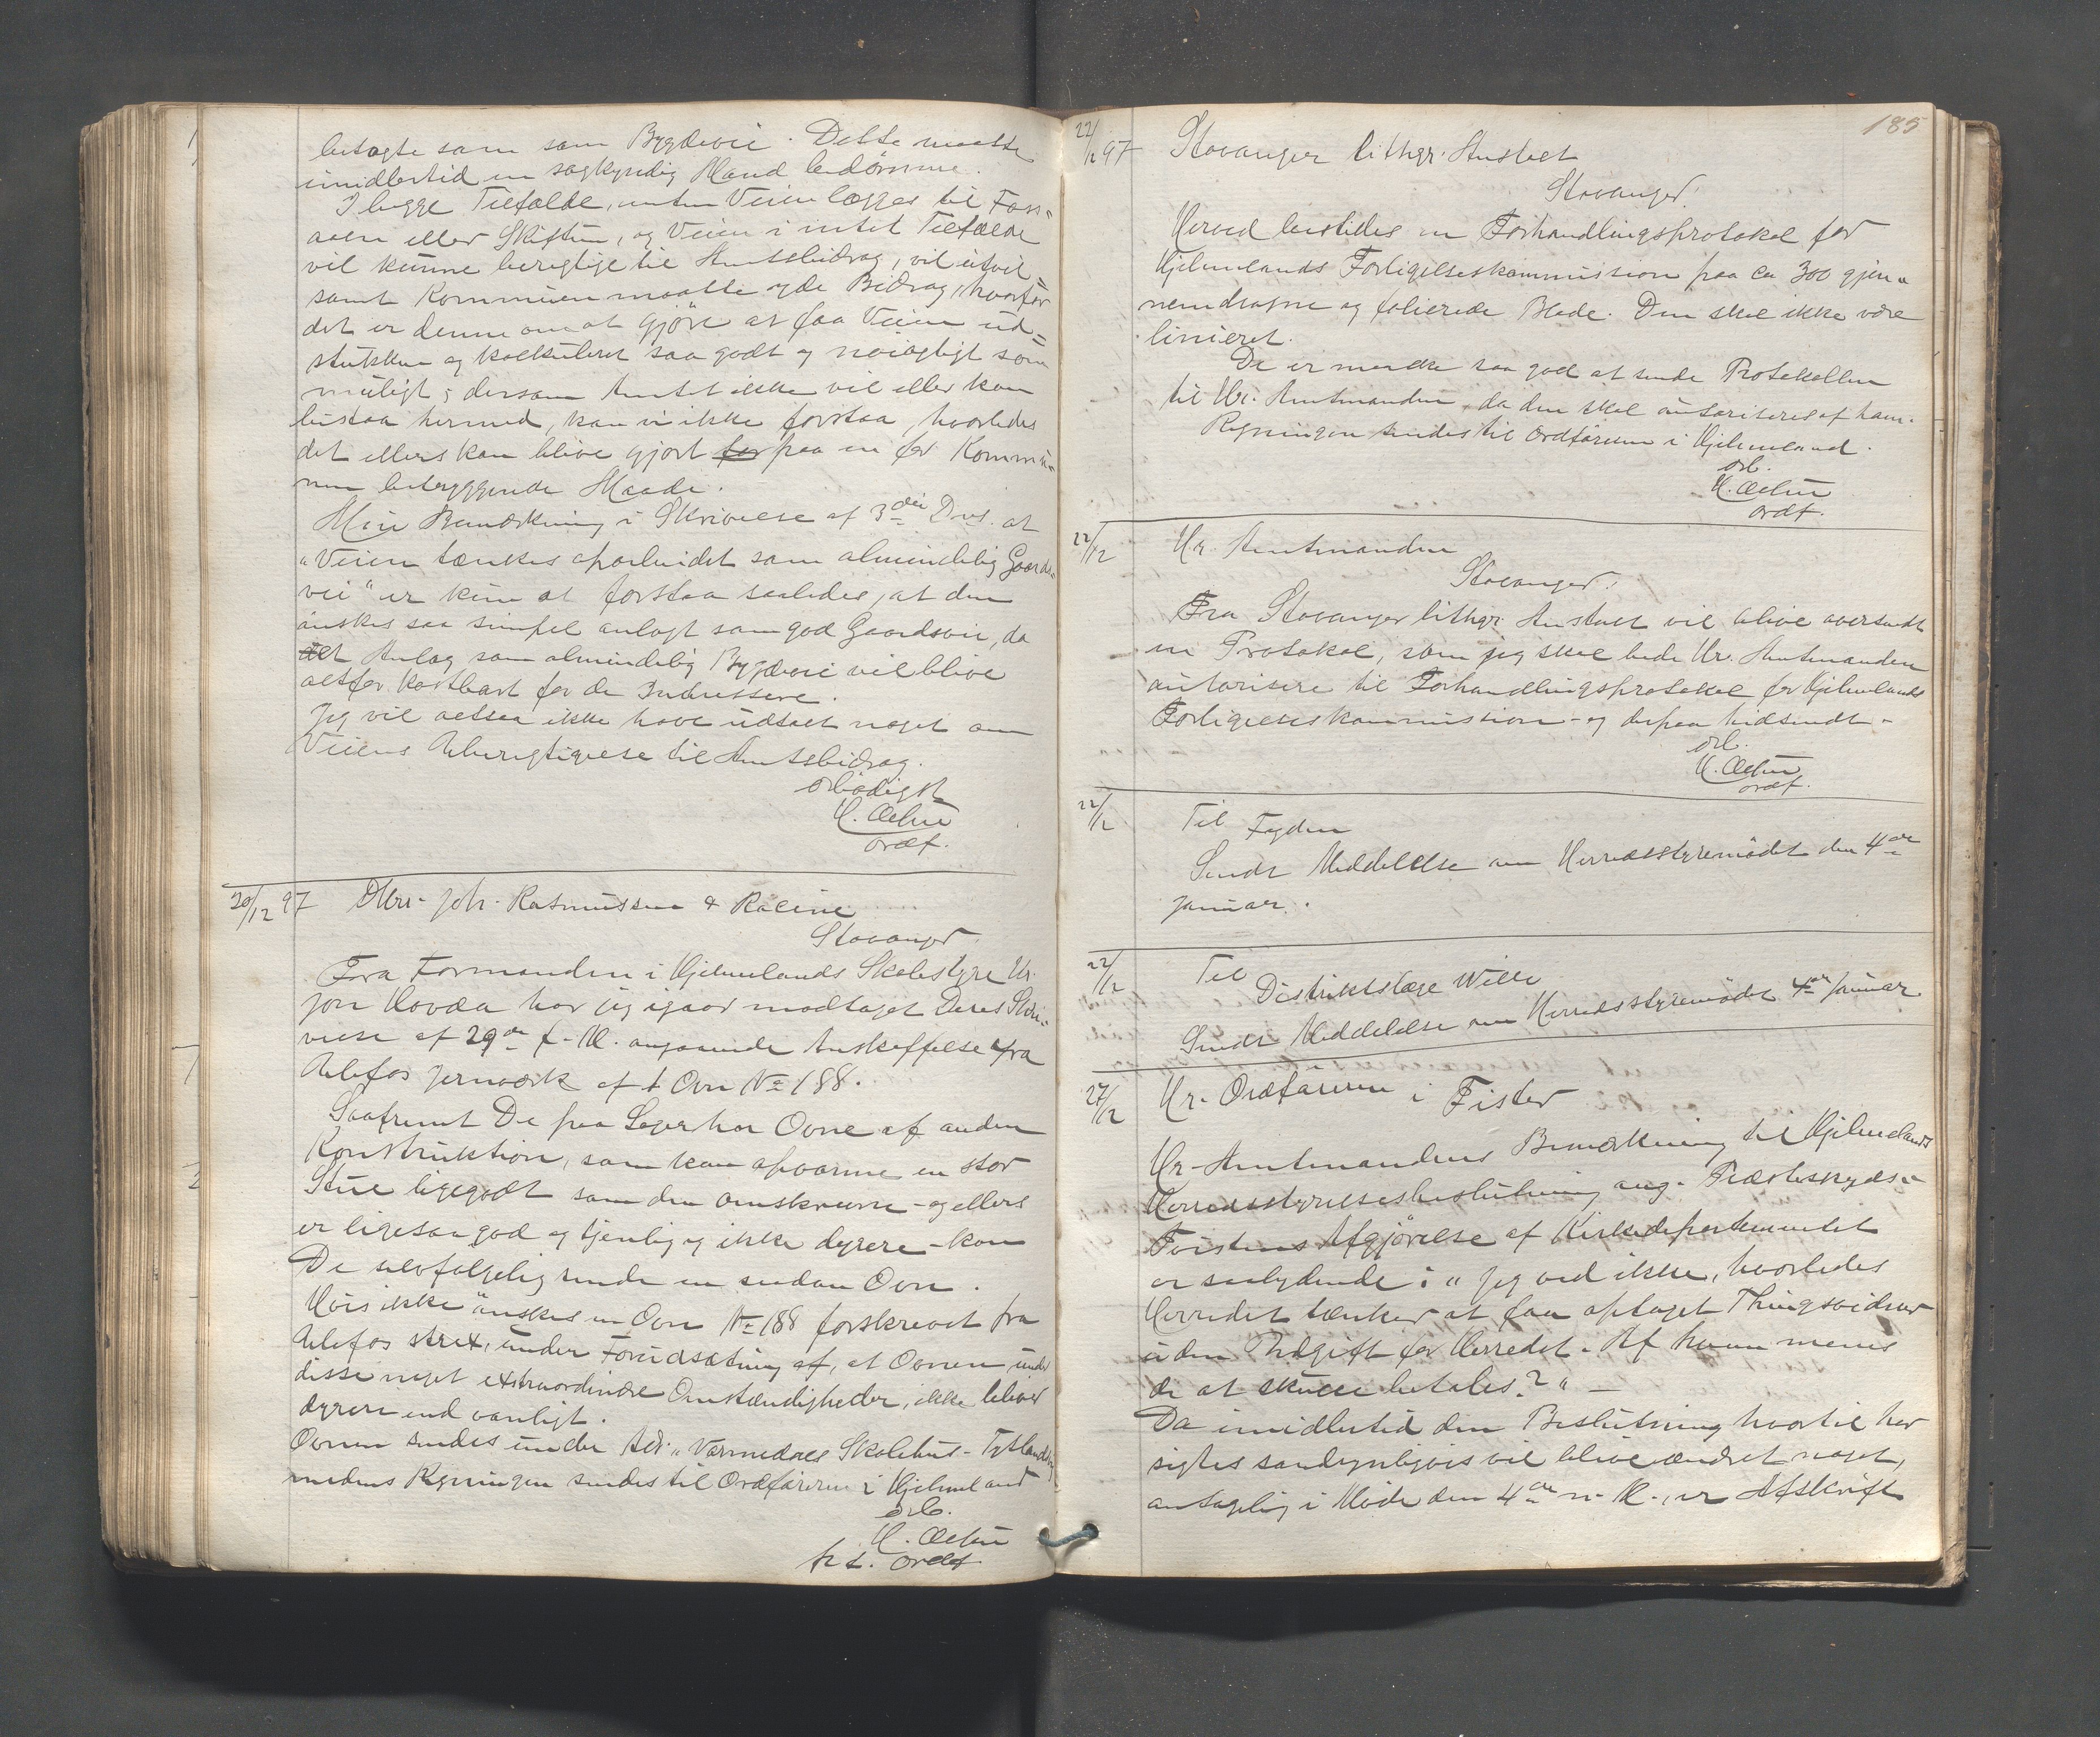 betragte som som Bygdevei. Dette maatte
imidlertid en sagkyndig Mand bedømme.
I begge Tilfælde, enten Veien lægges til Foss-
aaen eller Skiftun, og Veien i intet Tilfælde
vil kunne beregtige til Amtsbidrag, vil utvil-
somt Kommunen maatte yde Bidrag, hvorfor
det er denne om at gjøre at faa Veien ud-
stukken og kalkuleret saa godt og nøiagtigt som
muligt; dersom Amtet ikke vil eller kan
bistaa hermed, kan vi ikke forstaa, hvorledes
det ellers kan blive gjort for paa en for Kommu-
nen betryggende Maade.
Min Bemærkning i Skrivelse af 3die Ds. at
"Veien tænkes oparbeidet som almindelig Gaards-
vei" er kun at forstaa saaledes, at den
ønskes saa simpel anlagt som god Gaardsvei, da
det Anlæg som almindelig Bygdevei vil blive
altfor kostbart for de Interessere.
Jeg vil altsaa ikke have udtalt noget om
Veiens Uberegtigelse til Amtsbidrag.
ærbødigst
H. Æchu
ordf.
20/12 97 DHrr. Joh. Rasmussen & Racine
Stavanger.
Fra Formanden i Hjelmelands Skolestyre Hr.
Jon Hovda har jeg igaar modtaget Deres Skri-
velse af 29de f. M. angaaende Anskaffelse fra
Ulefos Jernværk af 1 Ovn No 188.
Saafremt De paa Lager har Ovne af anden
Konstruktion, som kan opvarme en stor
Stue ligegodt som den omskrevne - og ellers
er ligesaa god og tjenlig og ikke dyrere - kan
De selvfølgelig sende en saadan Ovn.
Hvis ikke ønskes en Ovn No 188 forskrevet fra
Ulefos strax, under Forudsætning af, at Ovnen under
disse noget extraordinære Omstændigheder, ikke bliver
dyrere end vanligt.
Ovnen sendes under Adr. "Vormedals Skolehus - Tytlandsvig
medens Regningen sendes til Ordføreren i Hjelmeland
ærb.
H. Æchu
p. t. ordf.
185
22/12 97 Stavanger lithgr. Anstalt
Stavanger.
Herved bestilles en Forhandlingsprotokol for
Hjelmelands Forligelseskommission paa ca 300 gjen-
nemdragne og folierede Blade. Den skal ikke være
linieret.
De er maaske saa god at sende Protokollen
til Hr. Amtmanden, da den skal autoriseres af ham.
Regningen sendes til Ordføreren i Hjelmeland.
ærb.
H. Æchu
ordf.
22/12 Hr. Amtmanden
Stavanger.
Fra Stavanger lithgr. Anstalt vil blive oversendt
en Protokol, som jeg skal bede Hr. Amtmanden
autorisere til Forhandlingsprotokol for Hjelmelands
Forligelseskommission - og derpaa hidsendt.
ærb.
H. Æchu
ordf.
22/12 Til Fogden
Sendt Meddelelse om Herredsstyremødet den 4de
Januar.
22/12 Til
Distriktslæge Wille
Sendt Meddelelse om Herredsstyremødet 4de Januar
27/12 Hr. Ordføreren i Fister
Hr. Amtmandens Bemærkning til Hjelmelands
Herredsstyrelsesbeslutning ang. Præsteskyds-
Tvistens Afgjørelse af Kirkedepartementet
er saalydende: "Jeg ved ikke, hvorledes
Herredet tænker at faa optaget Thingsvidner
uden Udgift for Herredet. Af hvem menes
de at skulle betales?" -
Da imidlertid den Beslutning hvortil her
sigtes sandsynligvis vil blive ændret noget,
antagelig i Møde den 4de n. M., er Afskrift